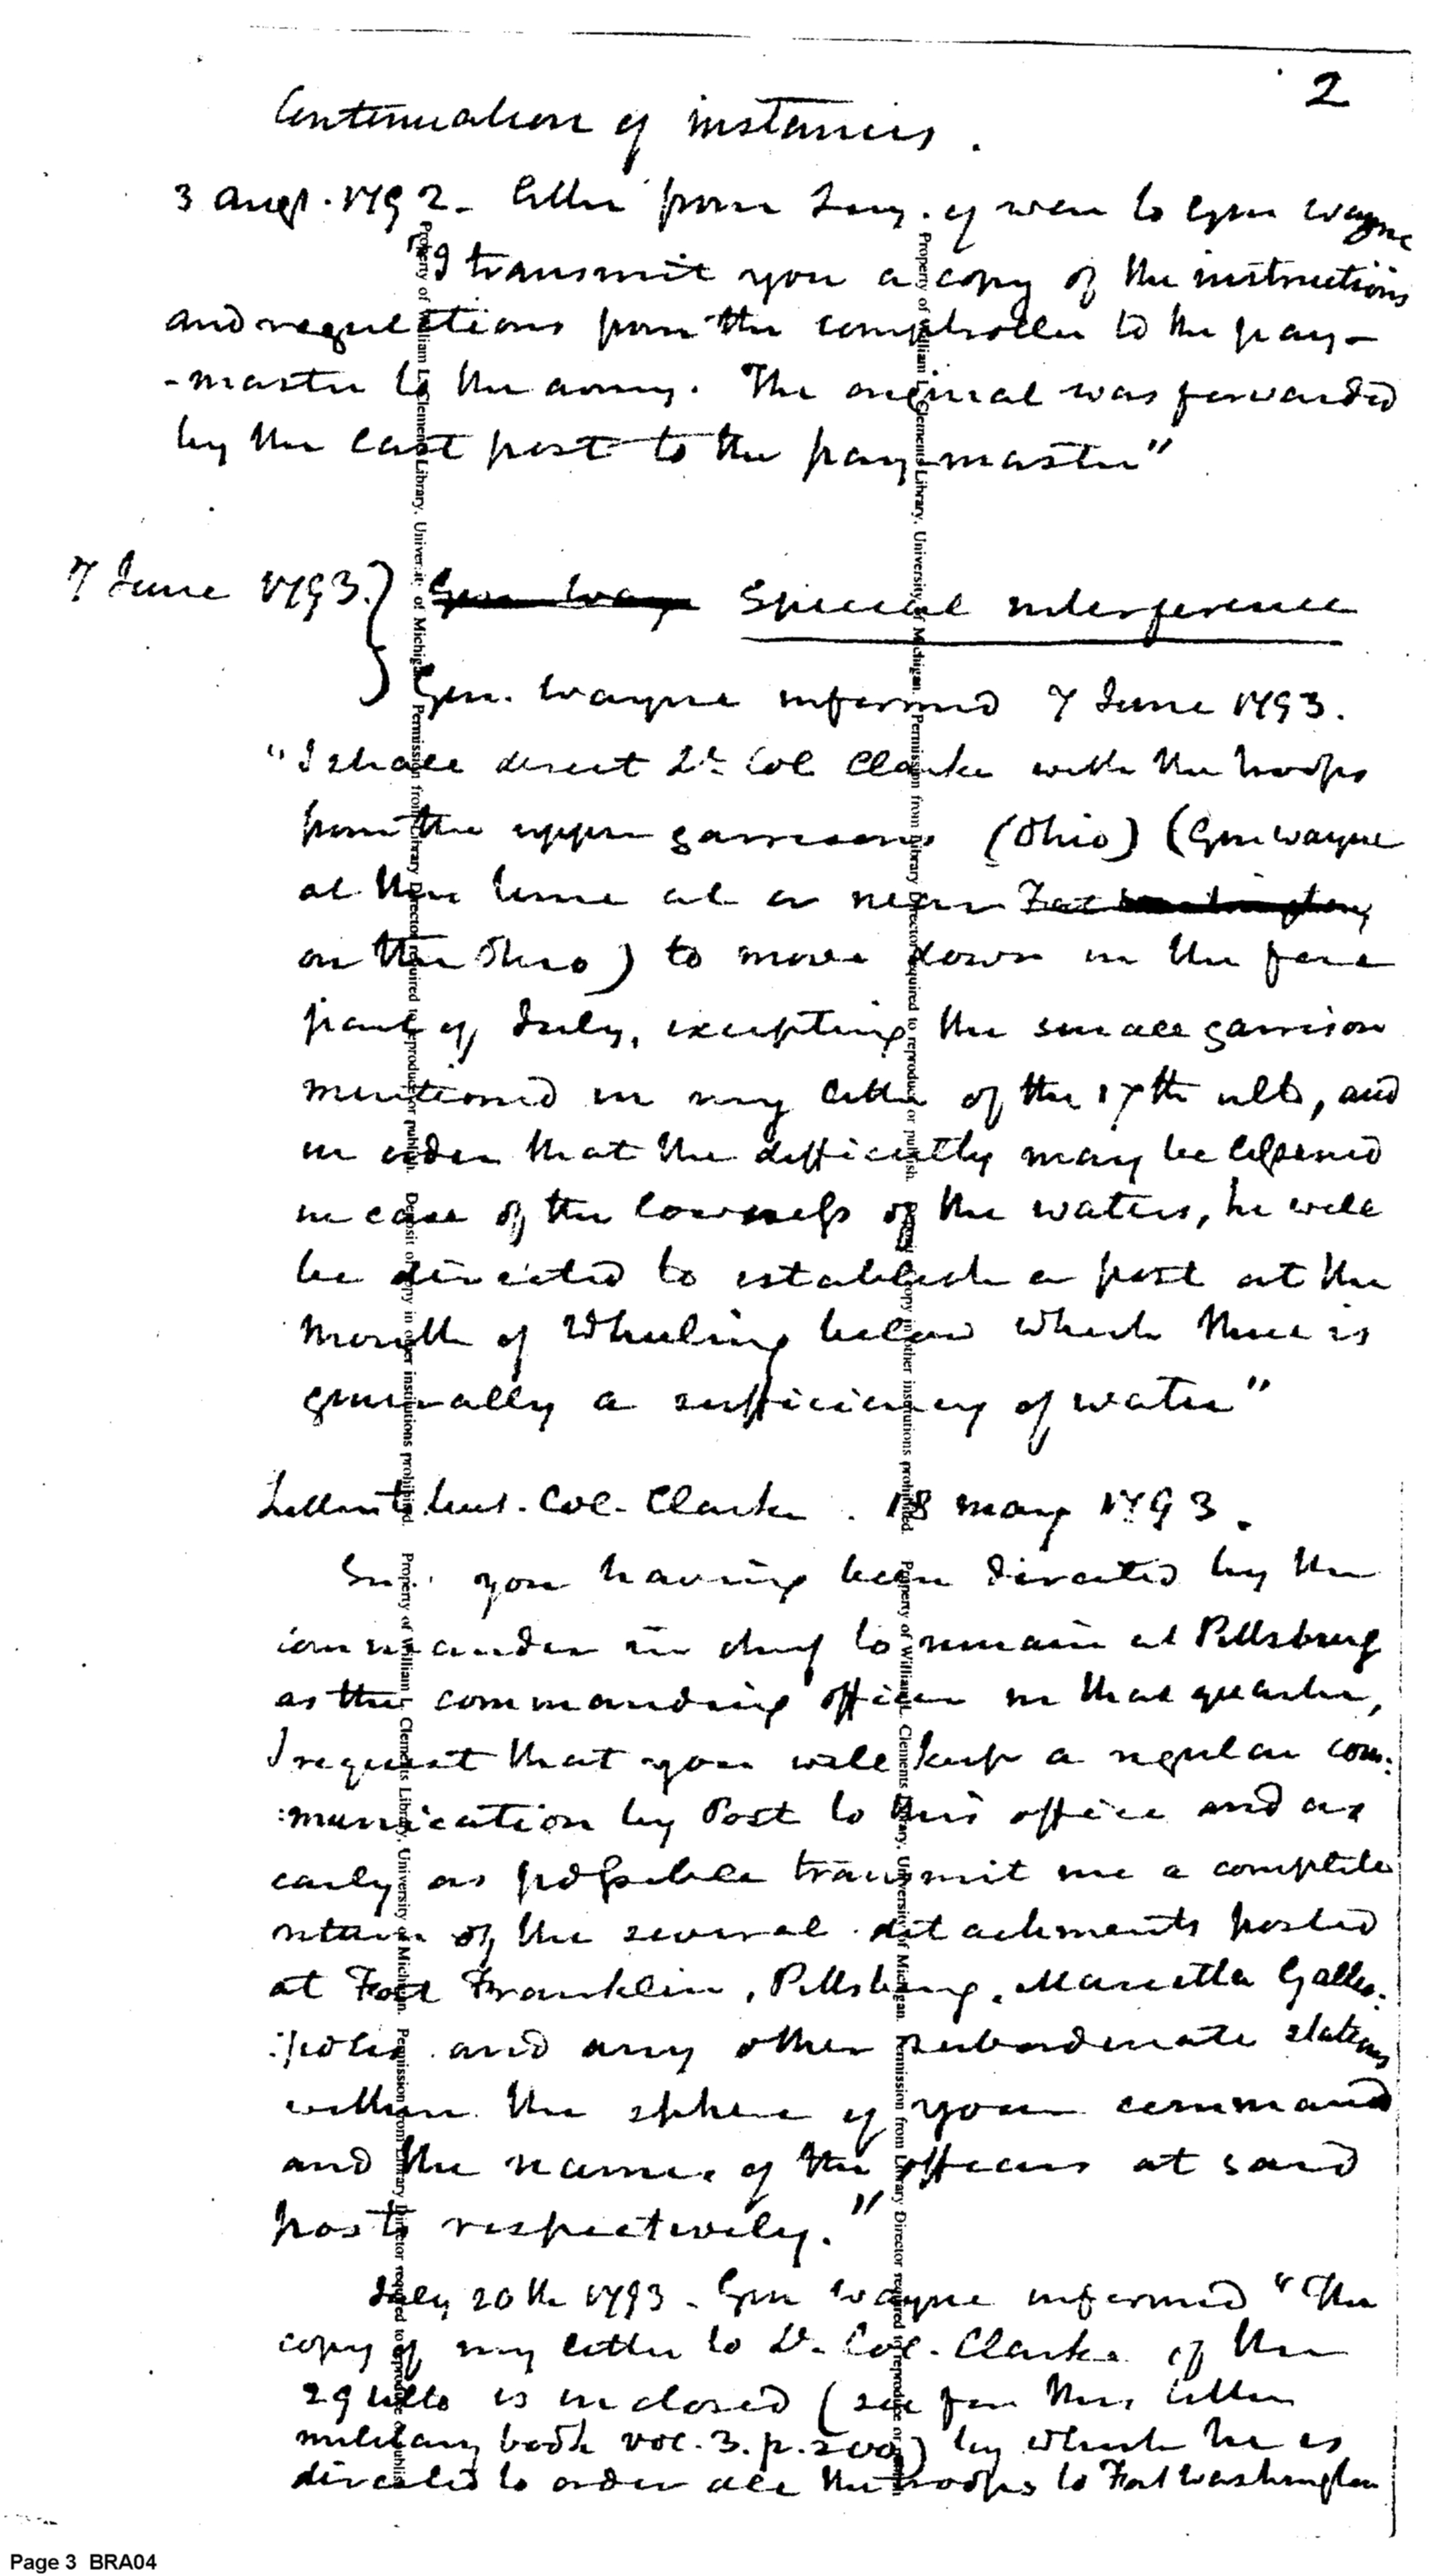 2
Continuation of instances.
3 Augt. 1792. letter from Secy. of war to Genl Wayne
"I transmit you a copy of the instructions
and regulations from the comptroller to the pay-
-master to the army. The original was forwarded
by the last post to the paymaster"
7 June 1793.} Gen Way Special interference
Gen. Wayne informed 7 June 1793.
"I shall direct Lt. Col Clarke with the troops
from the upper garrisons (Ohio) (Gen Wayne
at this time at or near Fort Washington
on the Ohio) to move down in the fore
part of July, excepting the small garrison
mentioned in my letter of the 17th ulto, and
in order that the difficulty may be lessened
in case of the lowness of the waters, he will
be directed to establish a post at the
mouth of Wheeling below which there is
generally a sufficiency of water"
Letter to Lieut. Col. Clarke. 18 May 1793.
Sir. you having been directed by the
commander in chief to remain at Pittsburg
as the commanding officer in that quarter,
I request that you will keep a regular com:
:munication by Post to this office and as
early as possible transmit me a complete
return of the several detachments posted
at Fort Franklin, Pittsburg, Marietta Gallio:
:polis and any other subordinate stations
within the sphere of your command
and the names of the officers at said
posts respectively."
July 20th 1793. Gen Wayne informed "The
copy of my letter to Lt. Col. Clarke of the
29 ulto is inclosed (see for this letter
military book vol. 3. p. 200) by which he is
directed to order all the troops to Fort Washington
Property of William L. Clements Library, University of Michigan. Permission from Library Director required to reproduce or publish. Deposit of copy in other institutions prohibited. Property of William L. Clements Library, University of Michigan. Permission from Library Director required to reproduce or publish
Property of William L. Clements Library, University of Michigan. Permission from Library Director required to reproduce or publish. Deposit of copy in other institutions prohibited. Property of William L. Clements Library, University of Michigan. Permission from Library Director required to reproduce or publish
Page 3 BRA04